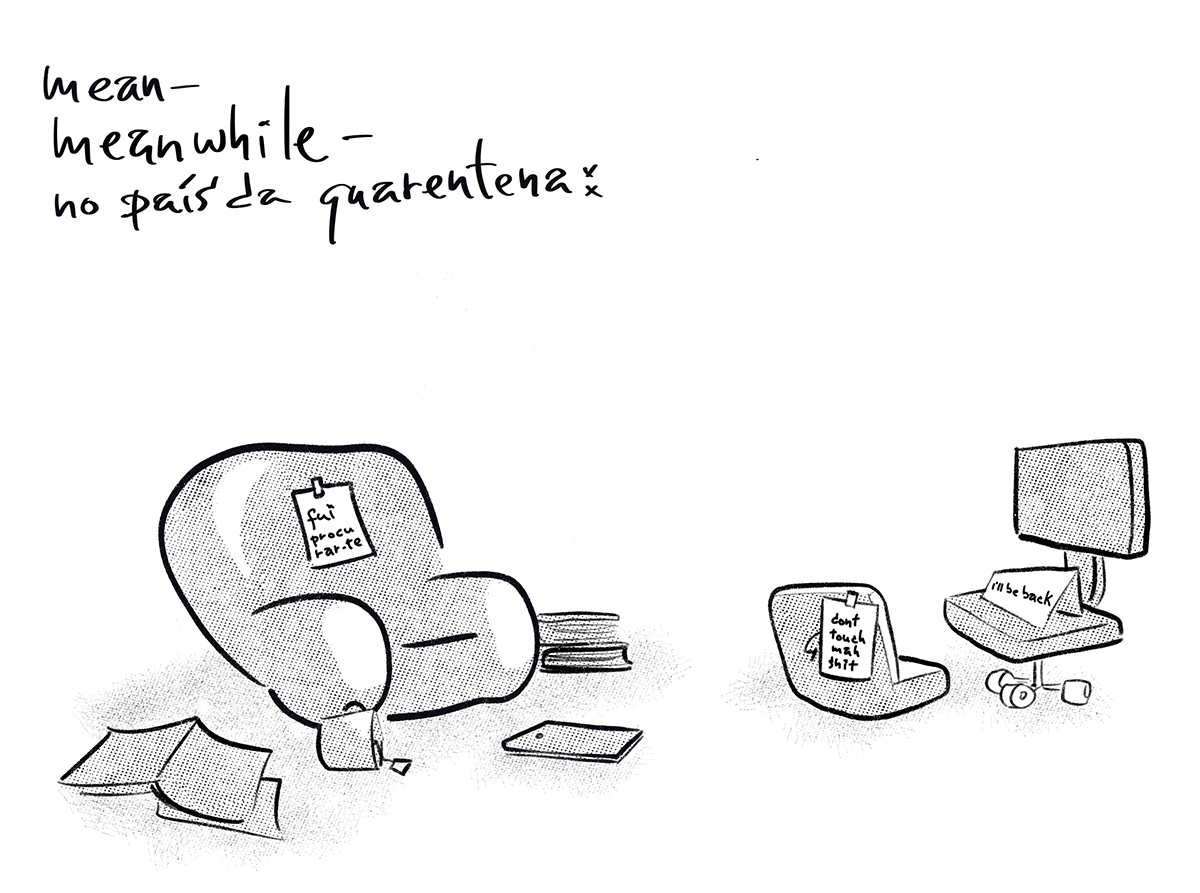 mean-
meanwhile-
no país da quarentena:
fui
procu
rar-te
dont
touch
mah
shit
i'll be back